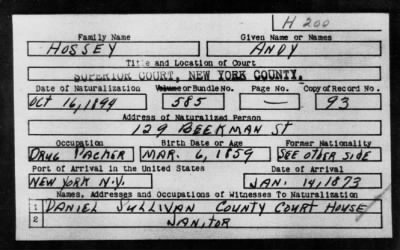 H 200
Family Name Given Name or Names
HOSSEY ANDY
Title and Location of Court
SUPERIOR COURT, NEW YORK COUNTY.
Date of Naturalization Volume or Bundle No. Page No. Copy of Record No.
OCT 16, 1894 585 — 93
Address of Naturalized Person
129 BEEKMAN ST
Occupation Birth Date or Age Former Nationality
DRUG PACKER MAR. 6, 1859 SEE OTHER SIDE
Port of Arrival in the United States Date of Arrival
NEW YORK N.Y. JAN. 14, 1873
Names, Addresses and Occupations of Witnesses To Naturalization
1 DANIEL SULLIVAN COUNTY COURT HOUSE
2 JANITOR